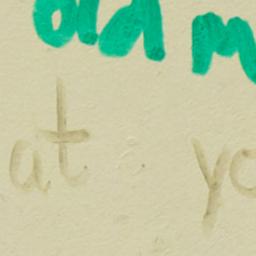 old m
at yo